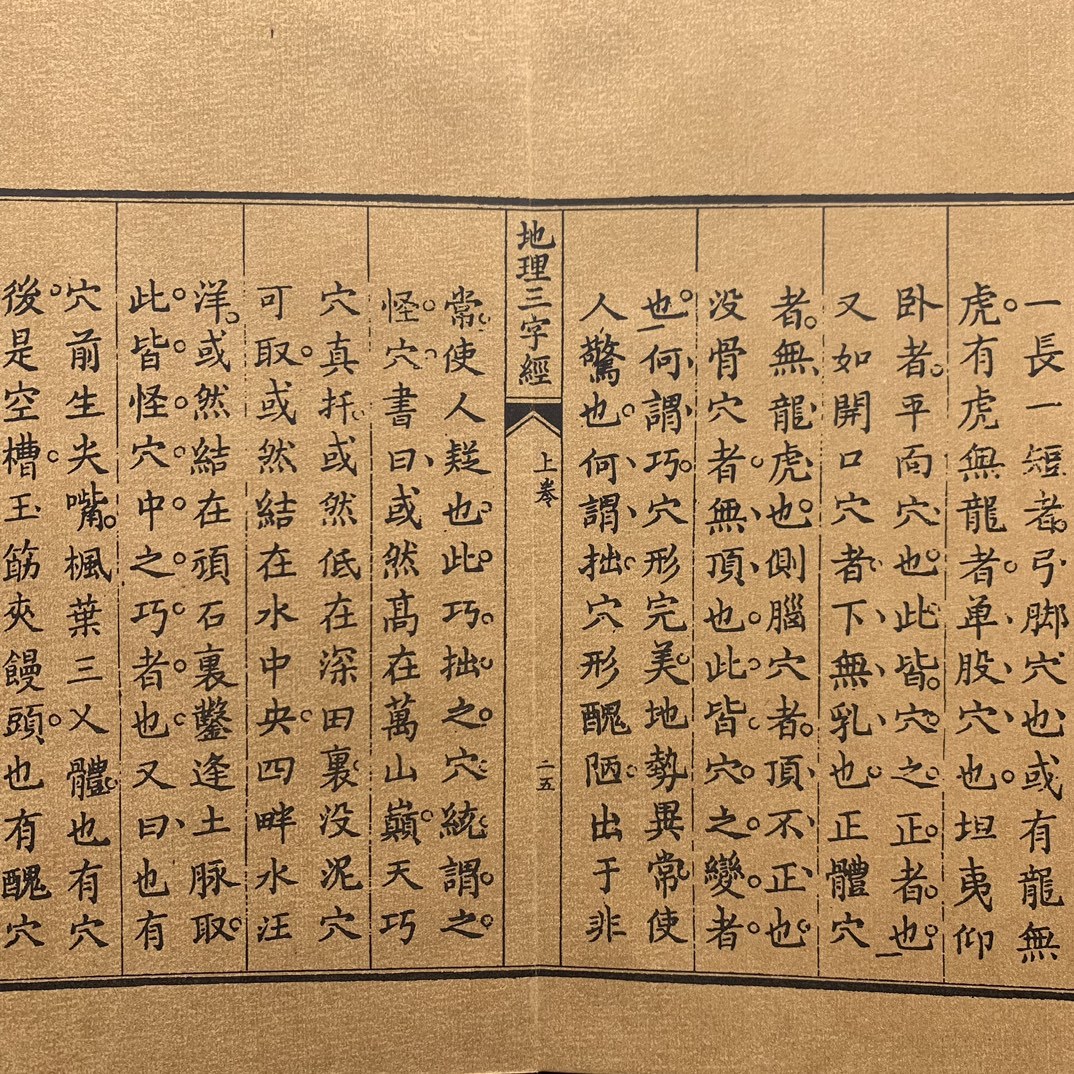 一長一短者。弓脚穴也、或有龍無
虎。有虎無龍者。单股穴也。坦夷仰
卧者。平面穴也。此皆穴之正者也。
又如開口穴者、下無乳也。正體穴
者。無龍虎也。側腦穴者。頂不正也。
没骨穴者。無頂也。此皆穴之變者
也。何謂巧。穴形完美。地勢異常。使
人驚也。何謂拙。穴形醜陋。出于非
地理三字經
上卷
二五
常。使人疑也。此巧拙之穴。統謂之。
怪。穴書曰、或然髙在萬山巔。天巧
穴真扦。或然低在深田裏。没泥穴
可取。或然結在水中央。四畔水汪
洋。或然結在頑石裏鑿逢土脉取。
此皆怪穴中之巧者也又曰、也有
穴前生尖嘴。楓葉三乂體。也有穴
後是空槽。玉筯夾饅頭。也有醜穴